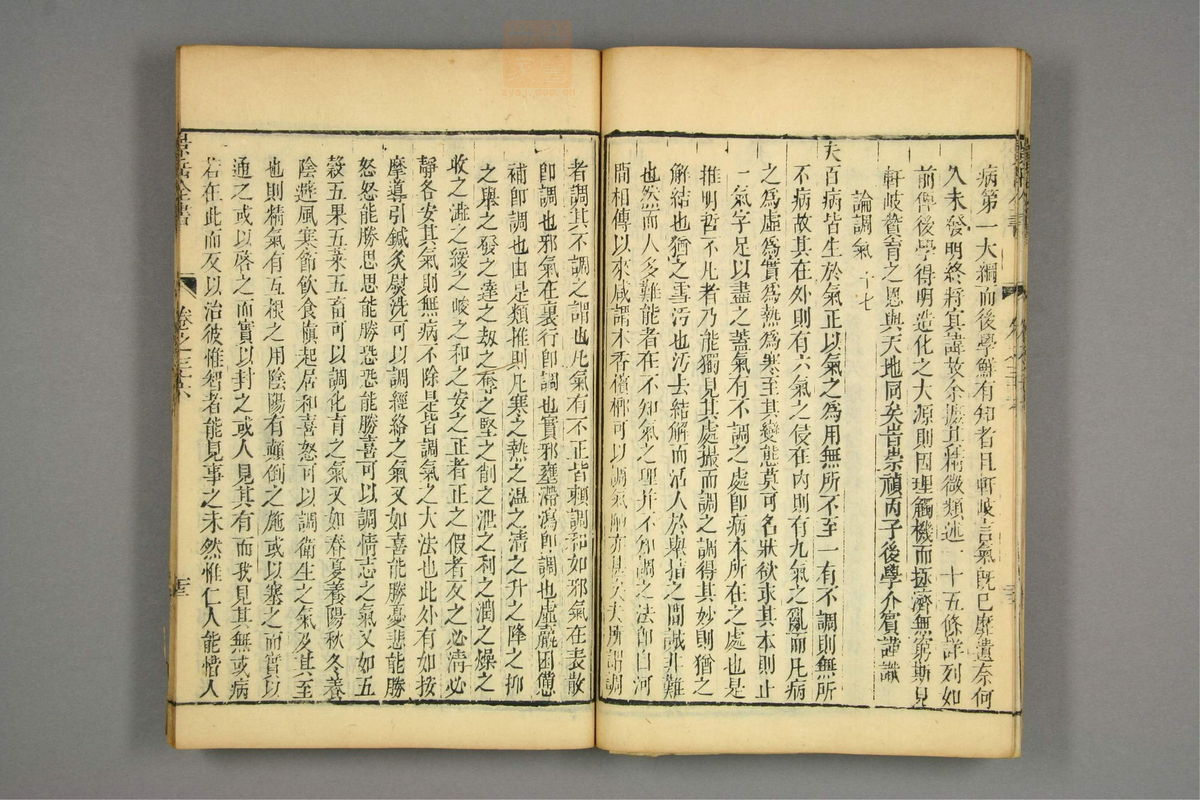 病第一大綱而後學鮮有知者且軒岐言氣既已靡遺奈何
久未發明終將冥諱故余摭其精微類述一十五條詳列如
前俾後學得明造化之大源則因理觸機而拯濟無窮斯見
軒岐贊育之恩與天地同矣旹崇禎丙子後學介賓謹識
論調氣 十七
夫百病皆生於氣正以氣之為用無所不至一有不調則無所
不病故其在外則有六氣之侵在內則有九氣之亂而凡病
之為虛為實為熱為寒至其變態莫可名狀欲求其本則止
一氣字足以盡之蓋氣有不調之處即病本所在之處也是
推明哲不凡者乃能獨見其處撮而調之調得其妙則猶之
解結也猶之雪污也污去結解而活人於舉指之間誠非難
也然而人多難能者在不知氣之理并不知調之法即自河
間相傳以來咸謂木香檳榔可以調氣陋亦甚矣夫所謂調
者調其不調之謂也凡氣有不正皆賴調和如邪氣在表散
即調也邪氣在裏行即調也實邪壅滯瀉即調也虛羸困憊
補即調也由是類推則凡寒之熱之溫之清之升之降之抑
之舉之發之達之刼之奪之堅之削之泄之利之潤之燥之
收之澁之緩之峻之和之安之正者正之假者反之必清必
靜各安其氣則無病不除是皆調氣之大法也此外有如按
摩導引鍼灸熨洗可以調經絡之氣又如喜能勝憂悲能勝
怒怒能勝思思能勝恐恐能勝喜可以調情志之氣又如五
穀五果五菜五畜可以調化育之氣又如春夏養陽秋冬養
陰避風寒節飲食慎起居和喜怒可以調衛生之氣及其至
也則精氣有互根之用陰陽有顛倒之施或以塞之而實以
通之或以啓之而實以封之或人見其有而我見其無或病
若在此而反以治彼惟智者能見事之未然惟仁人能惜人
景岳全書
卷之三